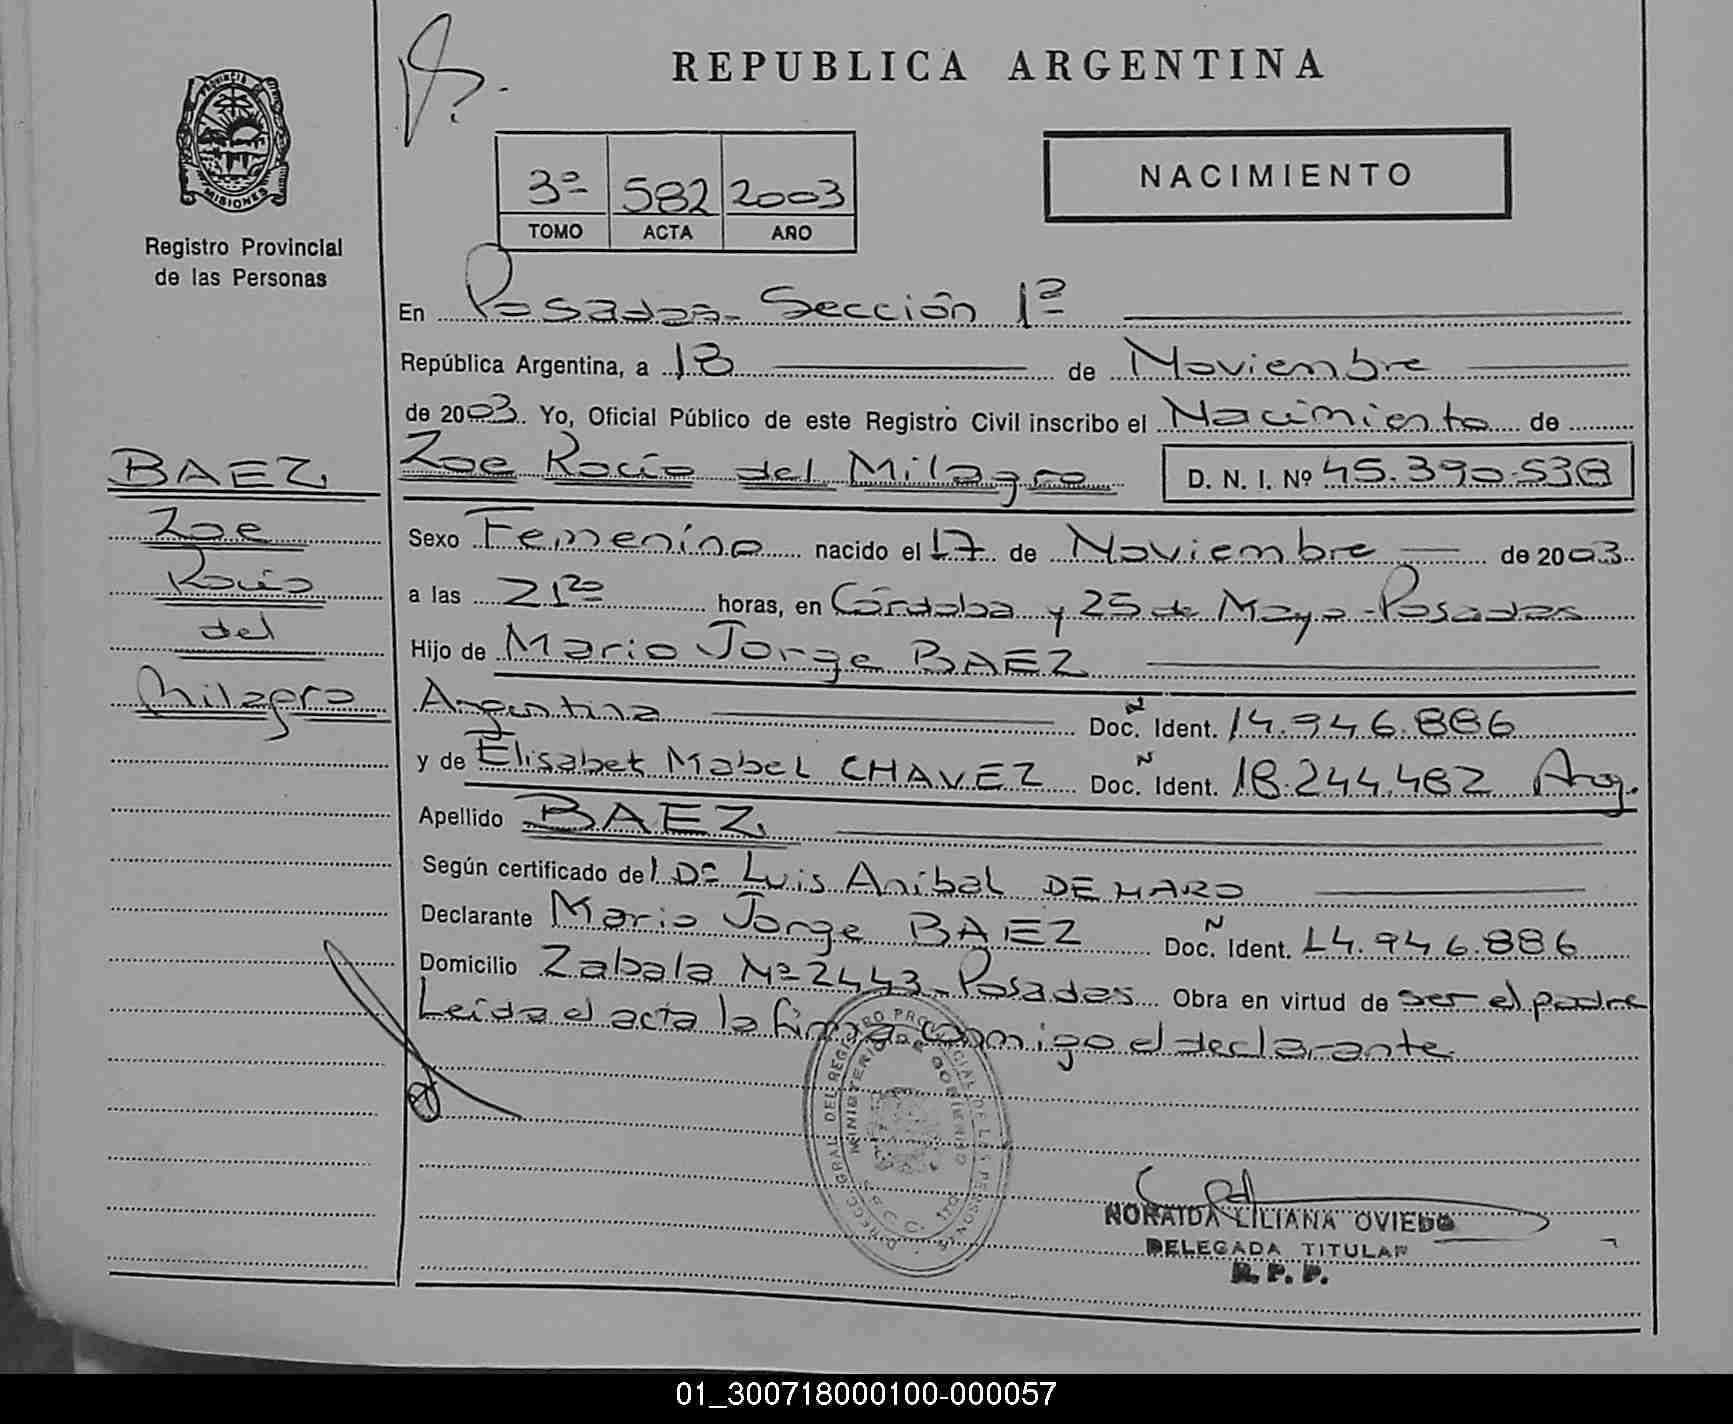 REPUBLICA ARGENTINA
PROVINCIA DE
MISIONES
Registro Provincial
de las Personas
3º 582 2003
TOMO ACTA AÑO
NACIMIENTO
En Posadas- Sección 1ª
República Argentina, a 18 de Noviembre
de 2003. Yo, Oficial Público de este Registro Civil inscribo el Nacimiento de
Zoe Rocío del Milagro D. N. I. Nº 45.390.538
BAEZ
Zoe
Rocío
del
Milagro
Sexo Femenino nacido el 17 de Noviembre de 2003.
a las 21²⁰ horas, en Córdoba y 25 de Mayo-Posadas
Hijo de Mario Jorge BAEZ
Argentina Doc. Ident. 14.946.886
y de Elisabet Mabel CHAVEZ Doc. Ident. 18.244.482 Arg.
Apellido BAEZ
Según certificado del Dr Luis Anibal DE HARO
Declarante Mario Jorge BAEZ Doc. Ident. 14.946.886
Domicilio Zabala Nº 2443-Posadas Obra en virtud de ser el padre
Leída el acta la firma conmigo el declarante
DIRECC. GRAL. DEL REGISTRO PROVINCIAL DE LAS PERSONAS
MINISTERIO DE GOBIERNO
NORAIDA LILIANA OVIEDO
DELEGADA TITULAR
R. P. P.
01_300718000100-000057